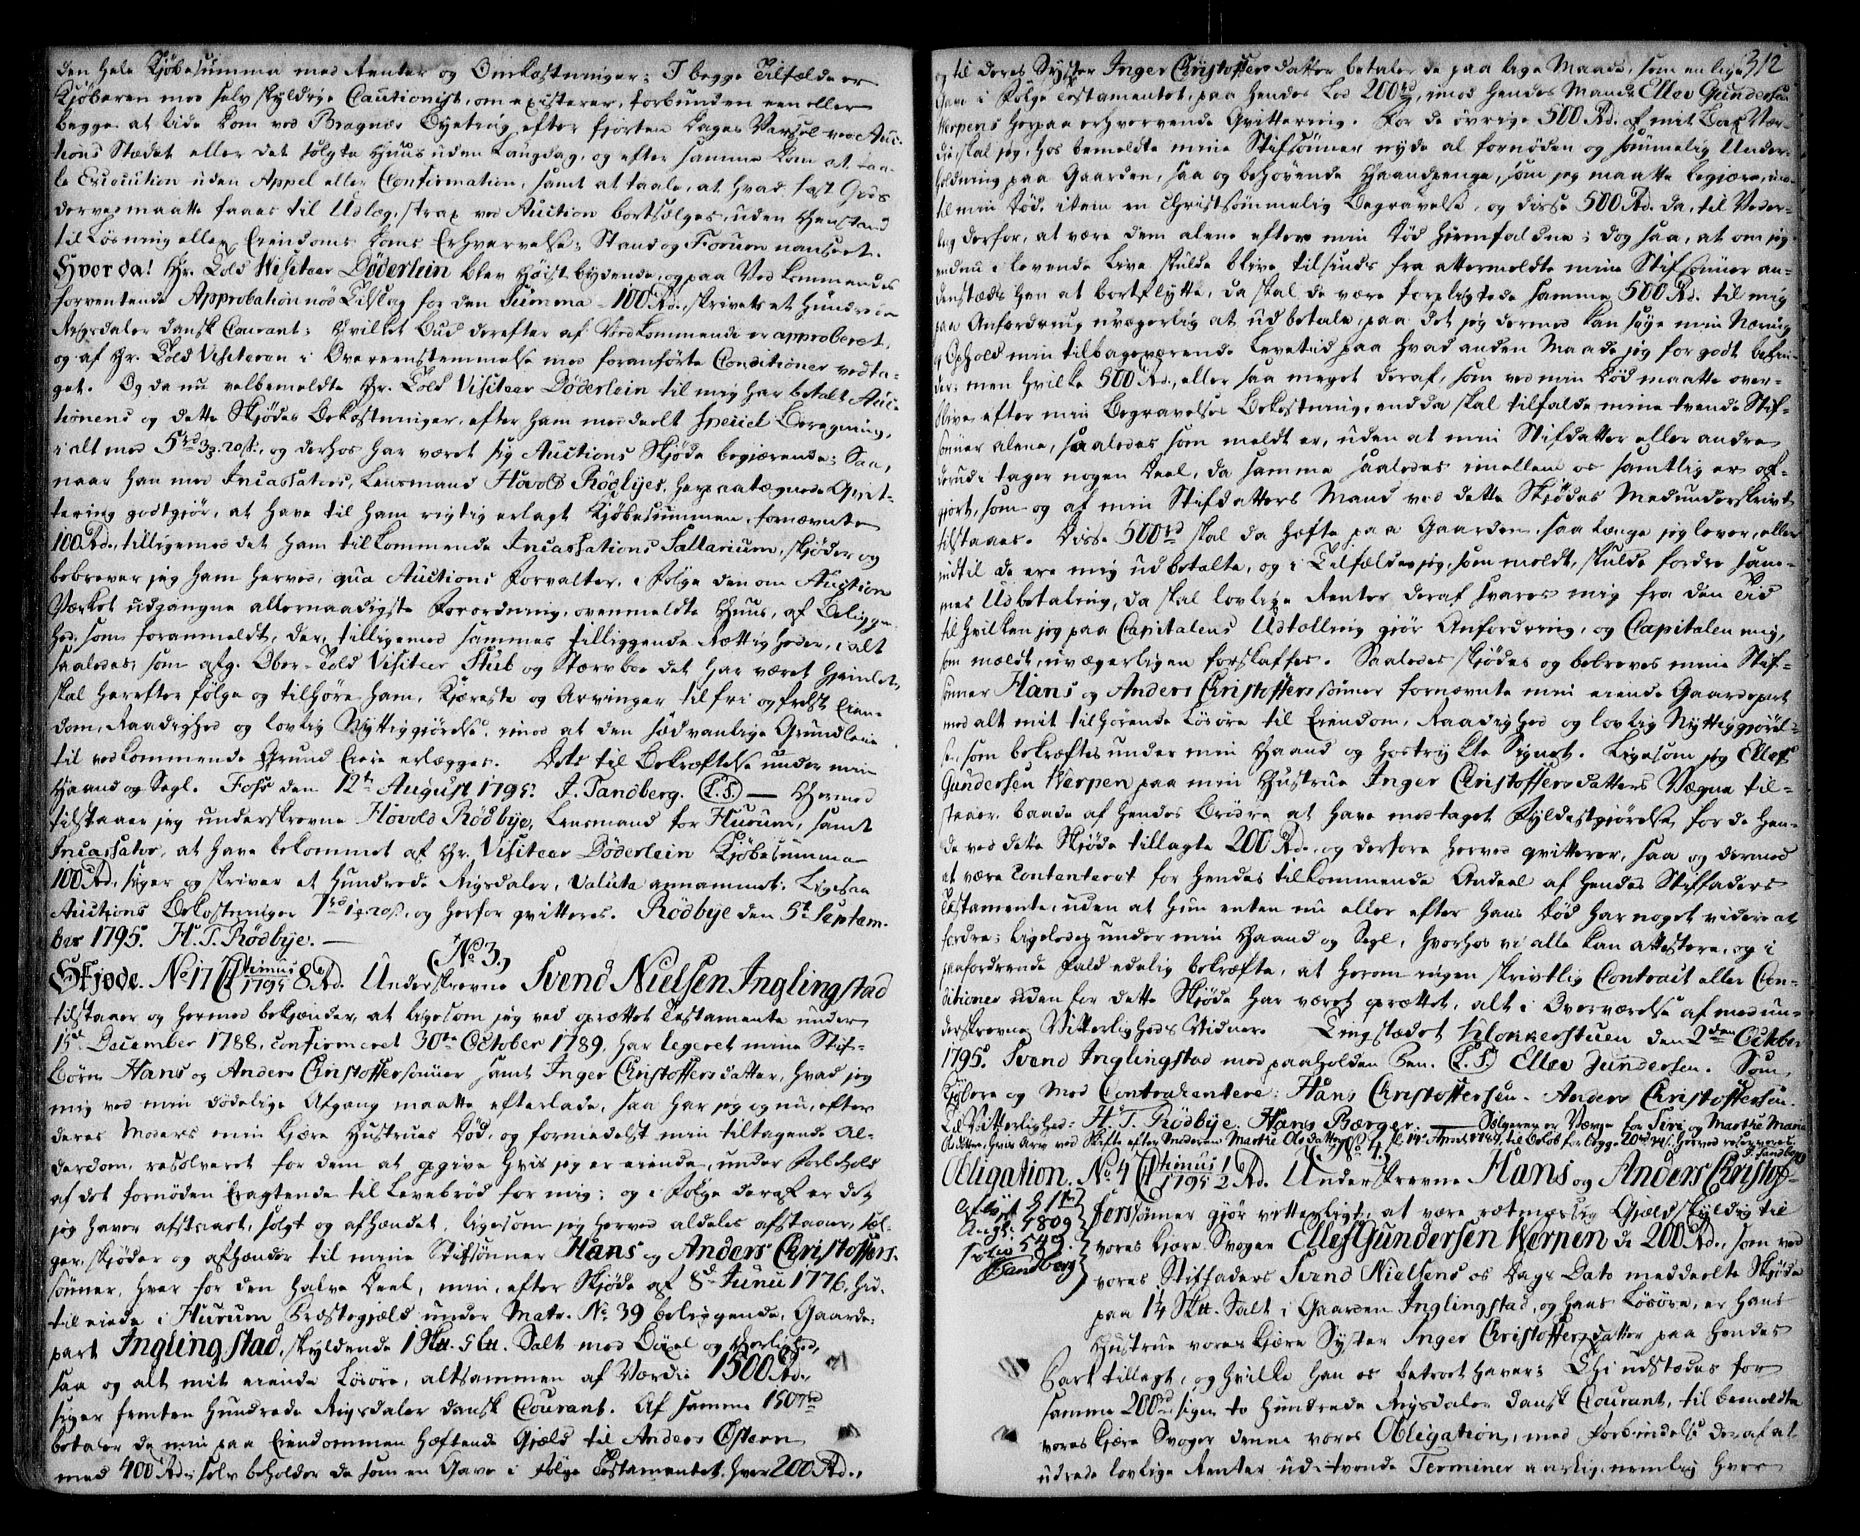 den hele Kjøbesumma med Renter og Omkostninger; I begge Tilfælde er
Kjøberen med selv skyldige Cautionist, om existerer, forbunden een eller
begge at lide Dom ved Bragnæs Byeting efter fjorten Dages Varsel ved Auc-
tions Stædet eller det solgte Huus uden Laugdag, og efter samme Dom at taa-
le Execution uden Appel eller Confirmation, samt at taale, at hvad fast Gods
derved maatte faaes til Udlæg, strax ved Auction bortsælges, uden Henstand
til Løsning eller Eiendoms Doms Erhvervelse; Stand og Forum uanseet.
Hvor da! Hr. Told Visiteur Döderlein blev Høistbydende, og paa Vedkommendes
forventende Approbation nød Tilslag for den Summa 100 Rd., skrives et Hundrede
Rigsdaler dansk Courant; Hvilket Bud derefter af Vedkommende er approberet,
og af Hr. Told Visiteuren i Overeensstemmelse med foranførte Conditioner vedta-
get. Og da nu velbemeldte Hr. Told Visiteur Döderlein til mig har betalt Auc-
tionens og dette Skjødes Bekostninger, efter ham meddeelt speciel Beregning,
i alt med 5rd 3 20 s., og derhos har været sig Auctions Skjøde begjærende; Saa,
naar han med Incassators, Lensmand Hovold Rödbyes, herpaategnede Qvit-
tering godtgjør, at have til ham rigtig erlagt Kjøbesummen, fornævnte
100 Rd., tilligemed det ham tilkommende Incassations Sallarium, skjøder og
bebrever jeg ham herved, qua Auctions Forvalter, i Følge den om Auction
Værket udgangne allernaadigste Forordning, ovenmeldte Huus, af Beliggen-
hed som foranmeldt, der, tilligemed sammes tilliggende Rettigheder, i alt
saaledes, som afg. Ober-Told Visiteur Stub og Stærvboe det har været hjemlet,
skal herefter følge og tilhøre ham, Kjæreste og Arvinger til frie og frelst Eien-
dom, Raadighed og lovlig Nyttiggjørelse, imod at den sædvanlige Grundleie
til vedkommende Grund Eiere erlægges. Dets til Bekræftelse under min
Haand og Segl. Foss den 12te August 1795. J. Tandberg. (L.S.) — Hermed
tilstaaer jeg underskrevne Hovold Rödbye, Lensmand for Hurum, samt
Incassator, at have bekommet af Hr. Visiteur Döderlein Kjøbesumma
100 Rd, siger og skriver et Hundrede Rigsdaler, Valuta annammet; Ligesaa
Auctions Bekostninger 1rd 1 20 s., og herfor qvitteres. Rödbye den 5te Septem-
ber 1795. H. T. Rödbye. —
(No 3.)
Skjøde. No 17 Ctimus 1795 8 Rd. Underskrevne Svend Nielsen Inglingstad
tilstaaer og hermed bekjender, at ligesom jeg ved oprettet Testamente under
15de December 1788, confirmeret 30te October 1789, har legeret mine Stif-
børn Hans og Anders Christoffersönner samt Inger Christoffersdatter, hvad jeg
mig ved min dödelige Afgang maatte efterlade, saa har jeg og nu, efter
deres Moders min kjære Hustrues Død, og formedelst min tiltagende Al-
derdom, resolveret for dem at opgive hvis jeg er eiende, under Forbehold
af det fornöden Eragtende til Levebröd for mig; og i Følge deraf er det
jeg haver afstaaet, solgt og afhændet, ligesom jeg herved aldeles afstaaer, sæl-
ger, skjøder og afhænder til mine Stifsönner Hans og Anders Christoffer-
sönner, hver for den halve Deel, min, efter Skjøde af 8de Junii 1776, hid-
til eiende i Hurum Præstegjeld under Matr. No 39 beliggende, Gaarde-
part Inglingstad, skyldende 1 Skp. 5 Lis. Salt med Böxel og Herlighed,
saa og alt mit eiende Løsøre, altsammen af Værdi 1500 Rd.
siger femten Hundrede Rigsdaler dansk Courant. Af samme 1500rd
betaler de min paa Eiendommen hæftende Gjæld til Anders Östern
med 400 Rd; selv beholder de som en Gave i følge Testamentet, hver 200 Rd.,
312
og til deres Syster Inger Christoffersdatter betaler de paa lige Maade, som en lige
Gave i Følge Testamentet, paa hendes Lod 200rd, imod hendes Mands Ellev Gundersen
Werpens herpaa erhvervende Qvittering. For de övrige 500 Rd. af mit Boes Vær-
die skal jeg, hos bemeldte mine Stifsönner nyde al fornöden og sömmelig Under-
holdning paa Gaarden, saa og behövende Haandpenge, som jeg maatte begjære, ind-
til min Död, item en christsömmelig Begravelse, og disse 500 Rd. da, til Veder-
lag derfor, at være dem alene efter min Död hjemfaldne; dog saa, at om jeg
endnu i levende Live skulde blive tilsinds fra attermeldte mine Stifsönner an-
denstæds hen at bortflytte, da skal de være forpligtede samme 500 Rd. til mig
paa Anfordring uvægerlig at udbetale, paa det jeg dermed kan söge min Næring
og Ophold min tilbageværende Levetid paa hvad anden Maade jeg for godt befin-
der; men hvilke 500 Rd., eller saa meget deraf, som ved min Död maatte over-
blive, efter min Begravelses Bekostning, endda skal tilfalde mine tvende Stif-
sönner alene, saaledes som meldt er, uden at min Stifdatter eller andre
derudi tager nogen Deel, da samme saaledes imellem os samtlig er af-
gjort, som og af min Stifdatters Mand ved dette Skjødes Medunderskrivt
tilstaaes. Disse 500rd skal da hefte paa Gaarden, saa længe jeg lever, eller
indtil de ere mig udbetalte, og i Tilfælde jeg, som meldt, skulde fordre sam-
mes Udbetaling, da skal lovlige Renter deraf svares mig fra den Tid
til hvilken jeg paa Capitalens Udtælling gjør Anfordring, og Capitalen mig,
som mældt, uvægerligen forskaffes. Saaledes skjødes og bebreves mine Stif-
sönner Hans og Anders Christofferssönner fornævnte min eiende Gaardepart
med alt mit tilhørende Løsøre til Eiendom, Raadighed og lovlig Nyttiggjørel-
se, som bekræftes under min Haand og hostrykte Signet. Ligesom jeg Ellef
Gundersen Werpen paa min Hustrue Inger Christoffersdatters Vægne til-
staaer, baade af hendes Brødre at have modtaget Fyldestgjørelse for de hen-
de ved dette Skjøde tillagte 200 Rd., og derfore herved qvitterer, saa og dermed
at være contenteret for hendes tilkommende Andeel af hendes Stiffaders
Testamente, uden at hun enten nu eller efter hans Död har noget videre at
fordre; ligeledes under min Haand og Segl, hvorhos vi alle kan attestere, og i
paafordrende Fald edelig bekræfte, at herom ingen skrivtlig Contract eller Con-
ditioner uden for dette Skjøde har været oprettet, alt i Overværelse af medun-
derskrevne Vitterligheds Vidner. Tingstædet Klokkerstuen den 2den October
1795. Svend Inglingstad med paaholden Pen. (L.S.) Ellev Gundersen. Som
Kjøbere og Med Contrahentere: Hans Christoffersen. Anders Christoffersen.
Til Vitterlighed: H. T. Rödbye. Hans Børger. — Sælgeren er Værge for Siri og Marthe Maria
Olsdatter, hvis Arv ved Skifte efter Moderen Marthe Olsdatter sl. 14. April 1787, til Beløb for begge 20rd herved reserveres.
J. Tandberg
(No 4.)
Obligation. No 4 Ctimus 1795 1/2 Rd. Underskrevne Hans og Anders Christof-
fersönner gjør vitterligt, at være retmessig Gjæld skyldig til
vores kjære Svoger Ellef Gundersen Werpen de 200 Rd., som ved
vores Stiffaders Svend Nielsens os Dags Dato meddeelte Skjøde
paa 1¼ Skp. Salt i Gaarden Inglingstad, og hans Løsøre, er hans
Hustrue vores kjære Syster Inger Christoffersdatter paa hendes
Part tillagt, og hvilke han os betroet haver; Thi udstædes for
samme 200rd, siger to Hundrede Rigsdaler dansk Courant, til bemeldte
vores kjære Svoger denne vores Obligation, med Forbindelse deraf at
udrede lovlige Renter udi tvende Terminer aarlig, nemlig hver
Aflyst 31te
Aug. 1809
folio 549.
Tandberg